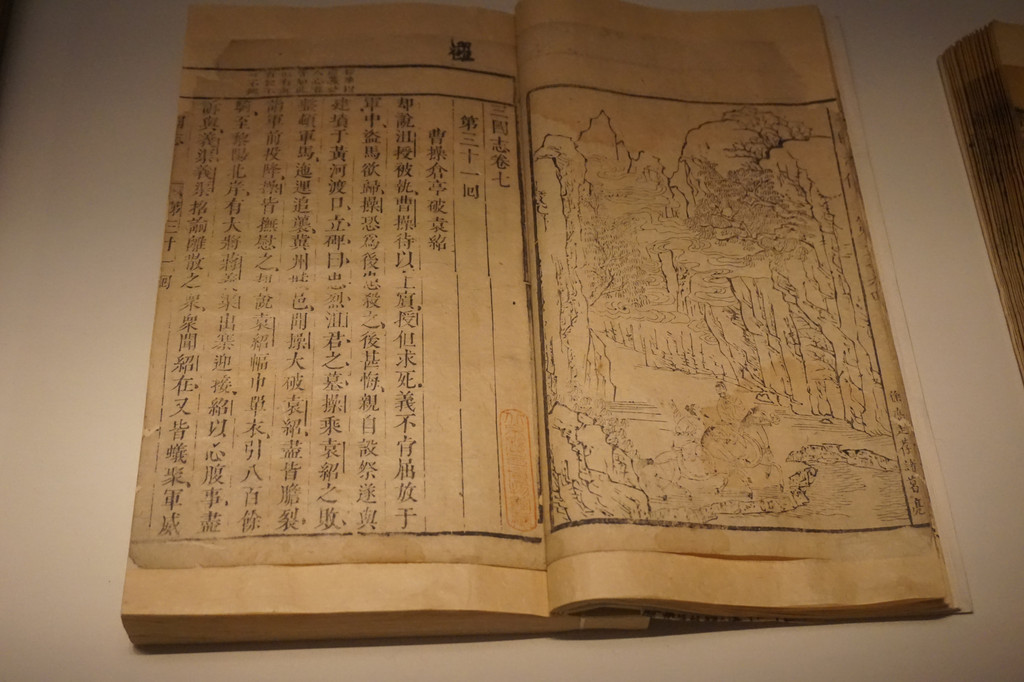 三國志卷七
第三十一回
曹操倉亭破袁紹
却說沮授被執、曹操待以上賓、授但求死、義不肯屈放于
軍中、盜馬欲歸、操恐爲後患殺之、後甚悔、親自設祭、遂與
建墳于黃河渡口、立碑曰忠烈沮君之墓、操乘袁紹之敗、
整頓軍馬、迤邐追襲、冀州城邑、聞操大破袁紹、盡皆膽裂、
軍前投降、操皆撫慰之、却說袁紹幅巾單衣、引八百餘
騎、至黎陽北岸、有大將蔣義渠出寨迎接、紹以心腹事、盡
訴與義渠、義渠招諭離散之衆、衆聞紹在、又皆蟻聚、軍威
第三十一回